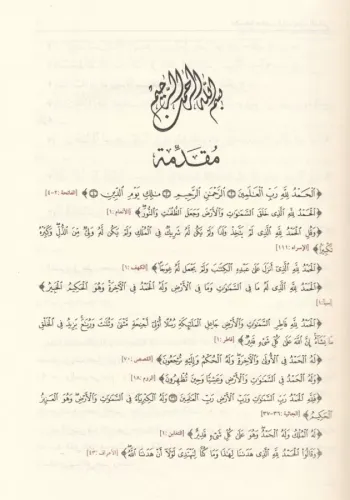 بسم الله الرحمن الرحيم
مقدمة
﴿الْحَمْدُ لِلَّهِ رَبِّ الْعَالَمِينَ ۝ الرَّحْمَنِ الرَّحِيمِ ۝ مَالِكِ يَوْمِ الدِّينِ ۝﴾ [الفاتحة: ٢-٤]
﴿الْحَمْدُ لِلَّهِ الَّذِي خَلَقَ السَّمَاوَاتِ وَالْأَرْضَ وَجَعَلَ الظُّلُمَاتِ وَالنُّورَ﴾ [الأنعام: ١]
﴿وَقُلِ الْحَمْدُ لِلَّهِ الَّذِي لَمْ يَتَّخِذْ وَلَدًا وَلَمْ يَكُنْ لَهُ شَرِيكٌ فِي الْمُلْكِ وَلَمْ يَكُنْ لَهُ وَلِيٌّ مِنَ الذُّلِّ وَكَبِّرْهُ
تَكْبِيرًا﴾ [الإسراء: ١١١]
﴿الْحَمْدُ لِلَّهِ الَّذِي أَنْزَلَ عَلَى عَبْدِهِ الْكِتَابَ وَلَمْ يَجْعَلْ لَهُ عِوَجًا﴾ [الكهف: ١]
﴿الْحَمْدُ لِلَّهِ الَّذِي لَهُ مَا فِي السَّمَاوَاتِ وَمَا فِي الْأَرْضِ وَلَهُ الْحَمْدُ فِي الْآخِرَةِ وَهُوَ الْحَكِيمُ الْخَبِيرُ﴾
[سبأ: ١]
﴿الْحَمْدُ لِلَّهِ فَاطِرِ السَّمَاوَاتِ وَالْأَرْضِ جَاعِلِ الْمَلَائِكَةِ رُسُلًا أُولِي أَجْنِحَةٍ مَثْنَى وَثُلَاثَ وَرُبَاعَ يَزِيدُ فِي الْخَلْقِ
مَا يَشَاءُ إِنَّ اللَّهَ عَلَى كُلِّ شَيْءٍ قَدِيرٌ﴾ [فاطر: ١]
﴿لَهُ الْحَمْدُ فِي الْأُولَى وَالْآخِرَةِ وَلَهُ الْحُكْمُ وَإِلَيْهِ تُرْجَعُونَ﴾ [القصص: ٧٠]
﴿وَلَهُ الْحَمْدُ فِي السَّمَاوَاتِ وَالْأَرْضِ وَعَشِيًّا وَحِينَ تُظْهِرُونَ﴾ [الروم: ١٨]
﴿فَلِلَّهِ الْحَمْدُ رَبِّ السَّمَاوَاتِ وَرَبِّ الْأَرْضِ رَبِّ الْعَالَمِينَ ۝ وَلَهُ الْكِبْرِيَاءُ فِي السَّمَاوَاتِ وَالْأَرْضِ وَهُوَ الْعَزِيزُ
الْحَكِيمُ﴾ [الجاثية: ٣٦-٣٧]
﴿لَهُ الْمُلْكُ وَلَهُ الْحَمْدُ وَهُوَ عَلَى كُلِّ شَيْءٍ قَدِيرٌ﴾ [التغابن: ١]
﴿وَقَالُوا الْحَمْدُ لِلَّهِ الَّذِي هَدَانَا لِهَذَا وَمَا كُنَّا لِنَهْتَدِيَ لَوْلَا أَنْ هَدَانَا اللَّهُ﴾ [الأعراف: ٤٣]